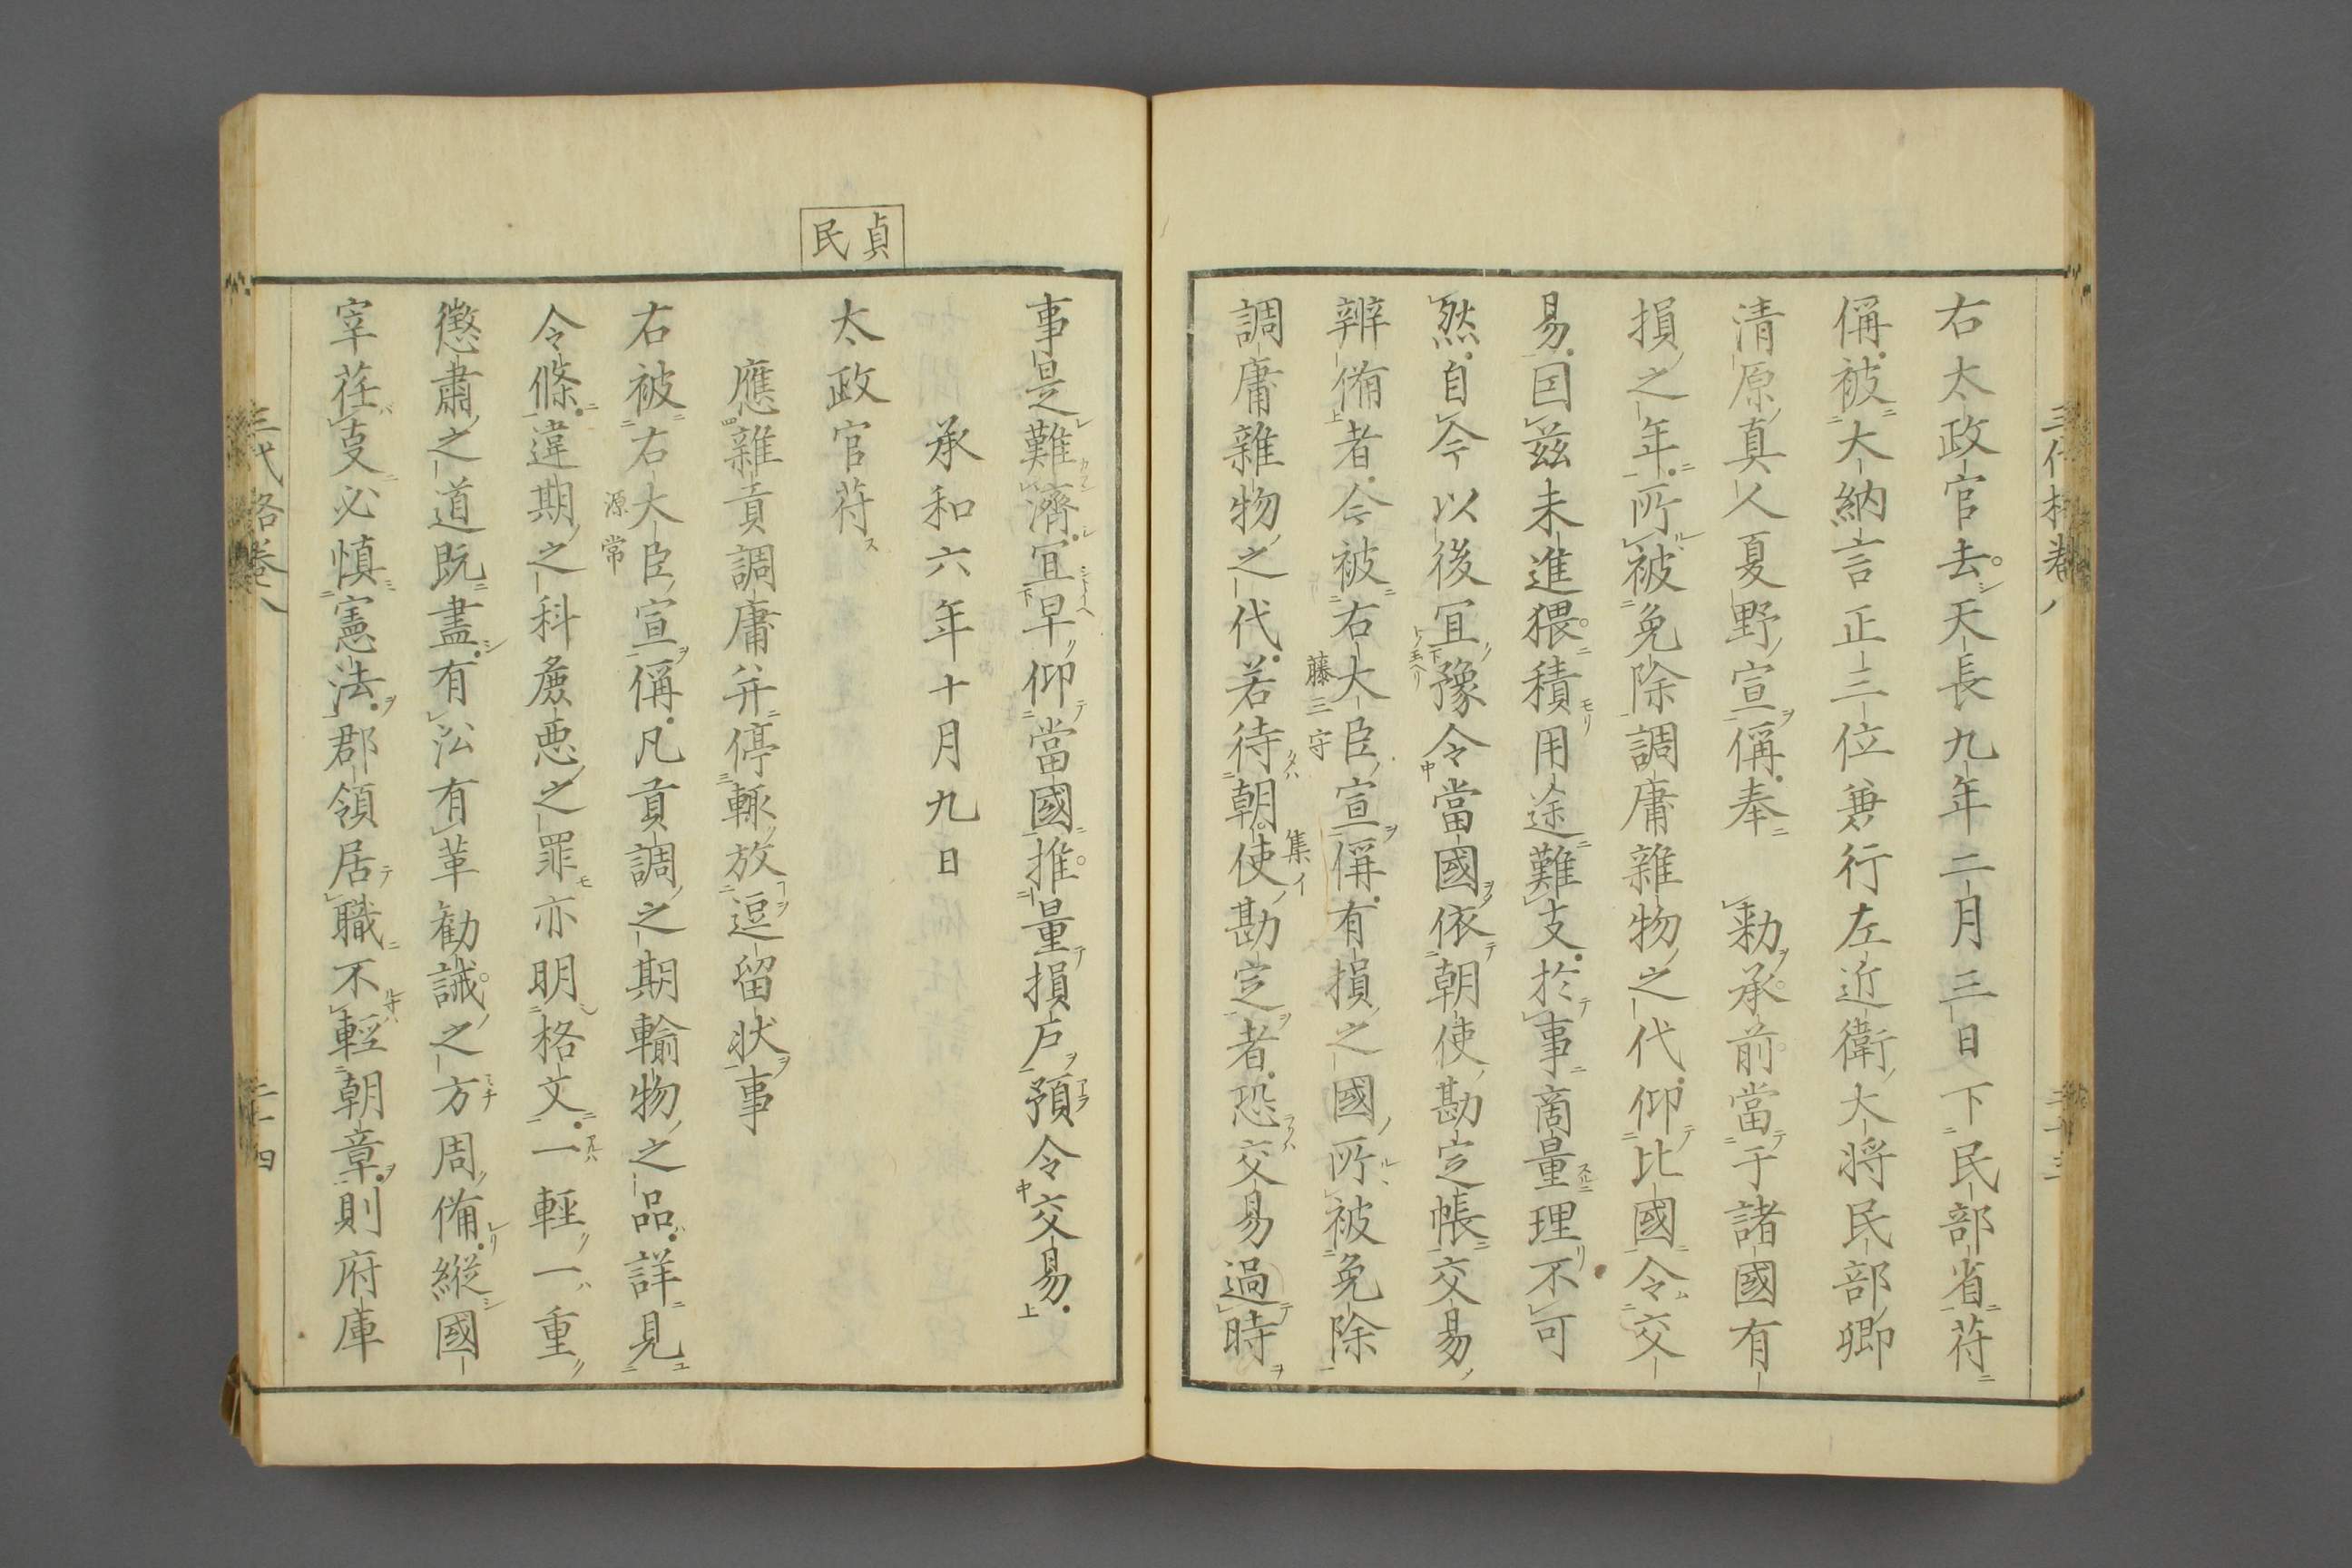 右太政官去天長九年二月三日下民部省苻
偁被大納言正三位兼行左近衛大将民部卿
清原真人夏野宣偁奉　勅承前當于諸國有
損之年所被免除調庸雜物之代仰比國令交
易因茲未進猥積用途難支於事商量理不可
然自今以後冝豫令當國依朝使勘定帳交易
辨偹者今被右大臣宣偁有損之國所被免除
藤三守
調庸雜物之代若待朝使勘定者恐交易過時
集イ
事是難濟冝早仰當國推量損戸預令交易
承和六年十月九日
貞
民
太政官苻
應雜貢調庸并停輙放逗留状事
右被右大臣宣偁凡貢調之期輸物之品詳見
源常
令條違期之科麁悪之罪亦明格文一輕一重
懲肅之道既盡有㳂有革勧誡之方周偹縦國
宰莅支必慎憲法郡領居職不輕朝章則府庫
三代格卷八
二十四